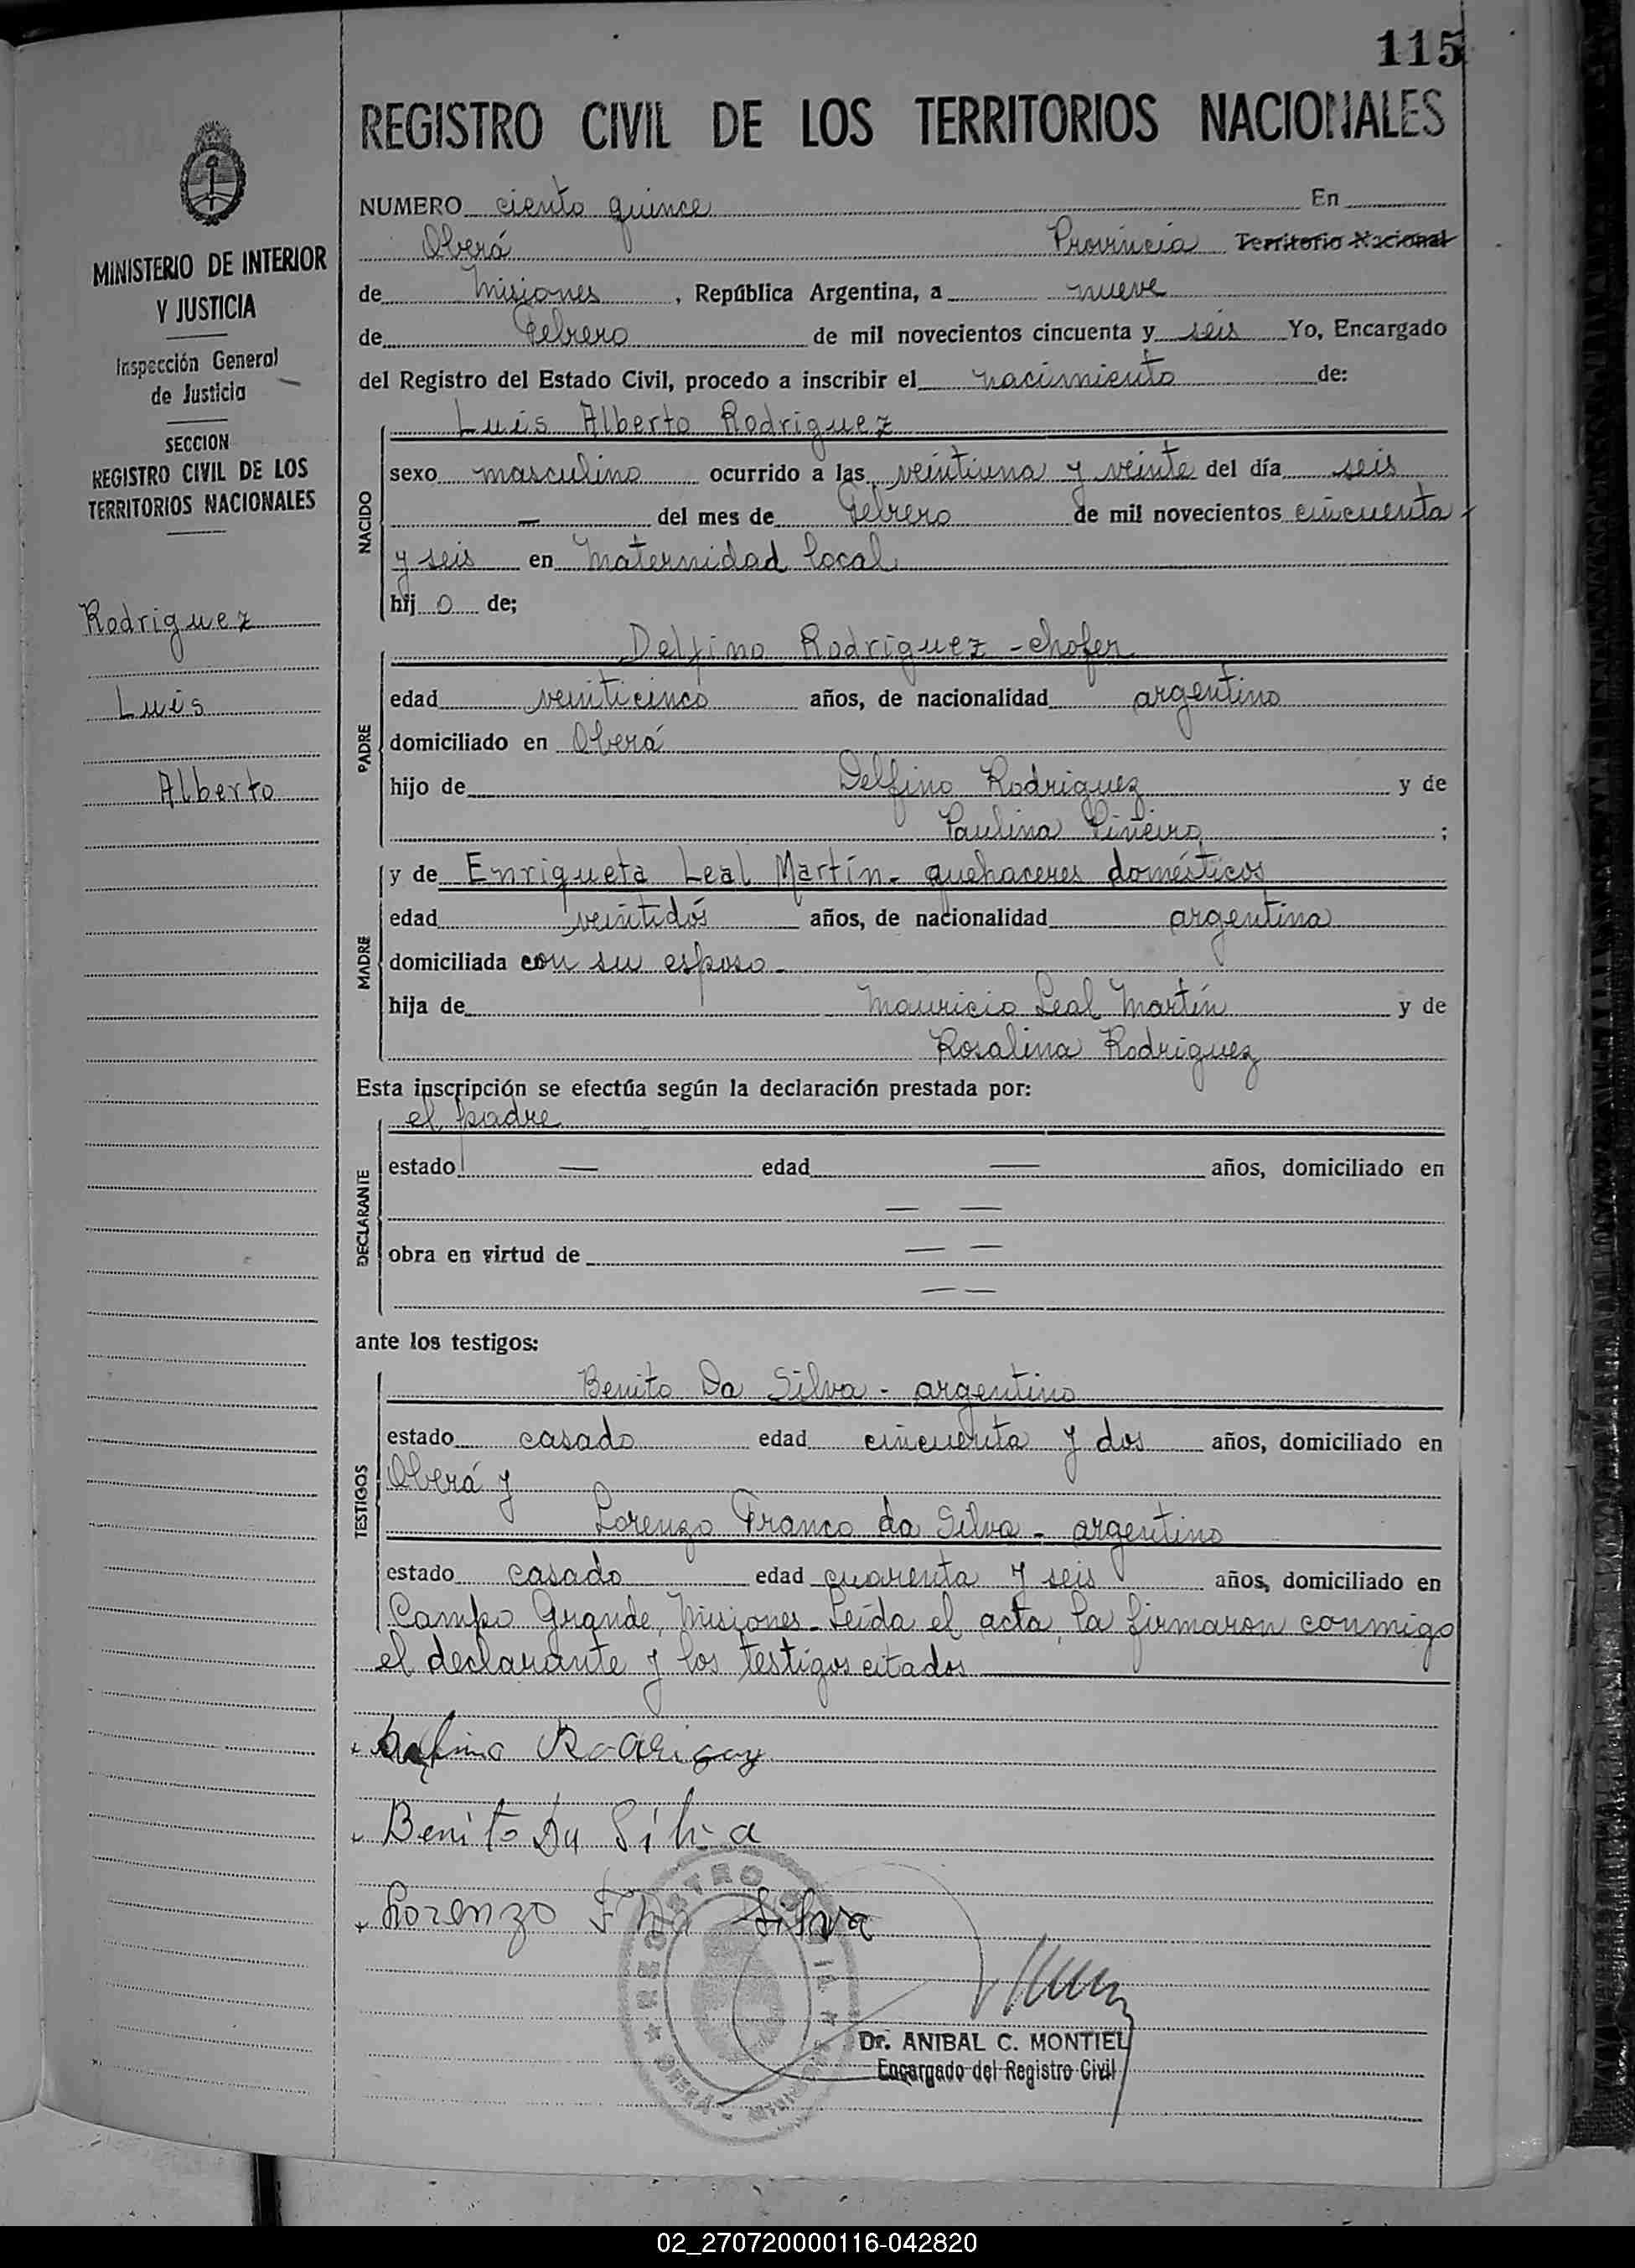 115
REGISTRO CIVIL DE LOS TERRITORIOS NACIONALES
MINISTERIO DE INTERIOR
Y JUSTICIA
Inspección General
de Justicia
SECCION
REGISTRO CIVIL DE LOS
TERRITORIOS NACIONALES
Rodriguez
Luis
Alberto
NUMERO ciento quince En
Oberá Provincia Territorio Nacional
de Misiones, República Argentina, a nueve
de Febrero de mil novecientos cincuenta y seis Yo, Encargado
del Registro del Estado Civil, procedo a inscribir el nacimiento de:
NACIDO
Luis Alberto Rodriguez
sexo masculino ocurrido a las veintiuna y veinte del día seis
— del mes de Febrero de mil novecientos cincuenta
y seis en Maternidad local
hij o de;
PADRE
Delfino Rodriguez - chofer
edad veinticinco años, de nacionalidad argentino
domiciliado en Oberá
hijo de Delfino Rodriguez y de
Paulina Piñeiro ;
MADRE
y de Enriqueta Leal Martín - quehaceres domésticos
edad veintidós años, de nacionalidad argentina
domiciliada con su esposo -
hija de Mauricio Leal Martín y de
Rosalina Rodriguez
Esta inscripción se efectúa según la declaración prestada por:
DECLARANTE
el padre
estado — edad — años, domiciliado en
— —
obra en virtud de — —
— —
ante los testigos:
TESTIGOS
Benito Da Silva - argentino
estado casado edad cincuenta y dos años, domiciliado en
Oberá y
Lorenzo Franco da Silva - argentino
estado casado edad cuarenta y seis años, domiciliado en
Campo Grande, Misiones - Leída el acta, la firmaron conmigo
el declarante y los testigos citados
Delfino Rodriguez
Benito Da Silva
Lorenzo F Da Silva
REGISTRO CIVIL
OBERÁ - MISIONES
Dr. ANIBAL C. MONTIEL
Encargado del Registro Civil
02_270720000116-042820